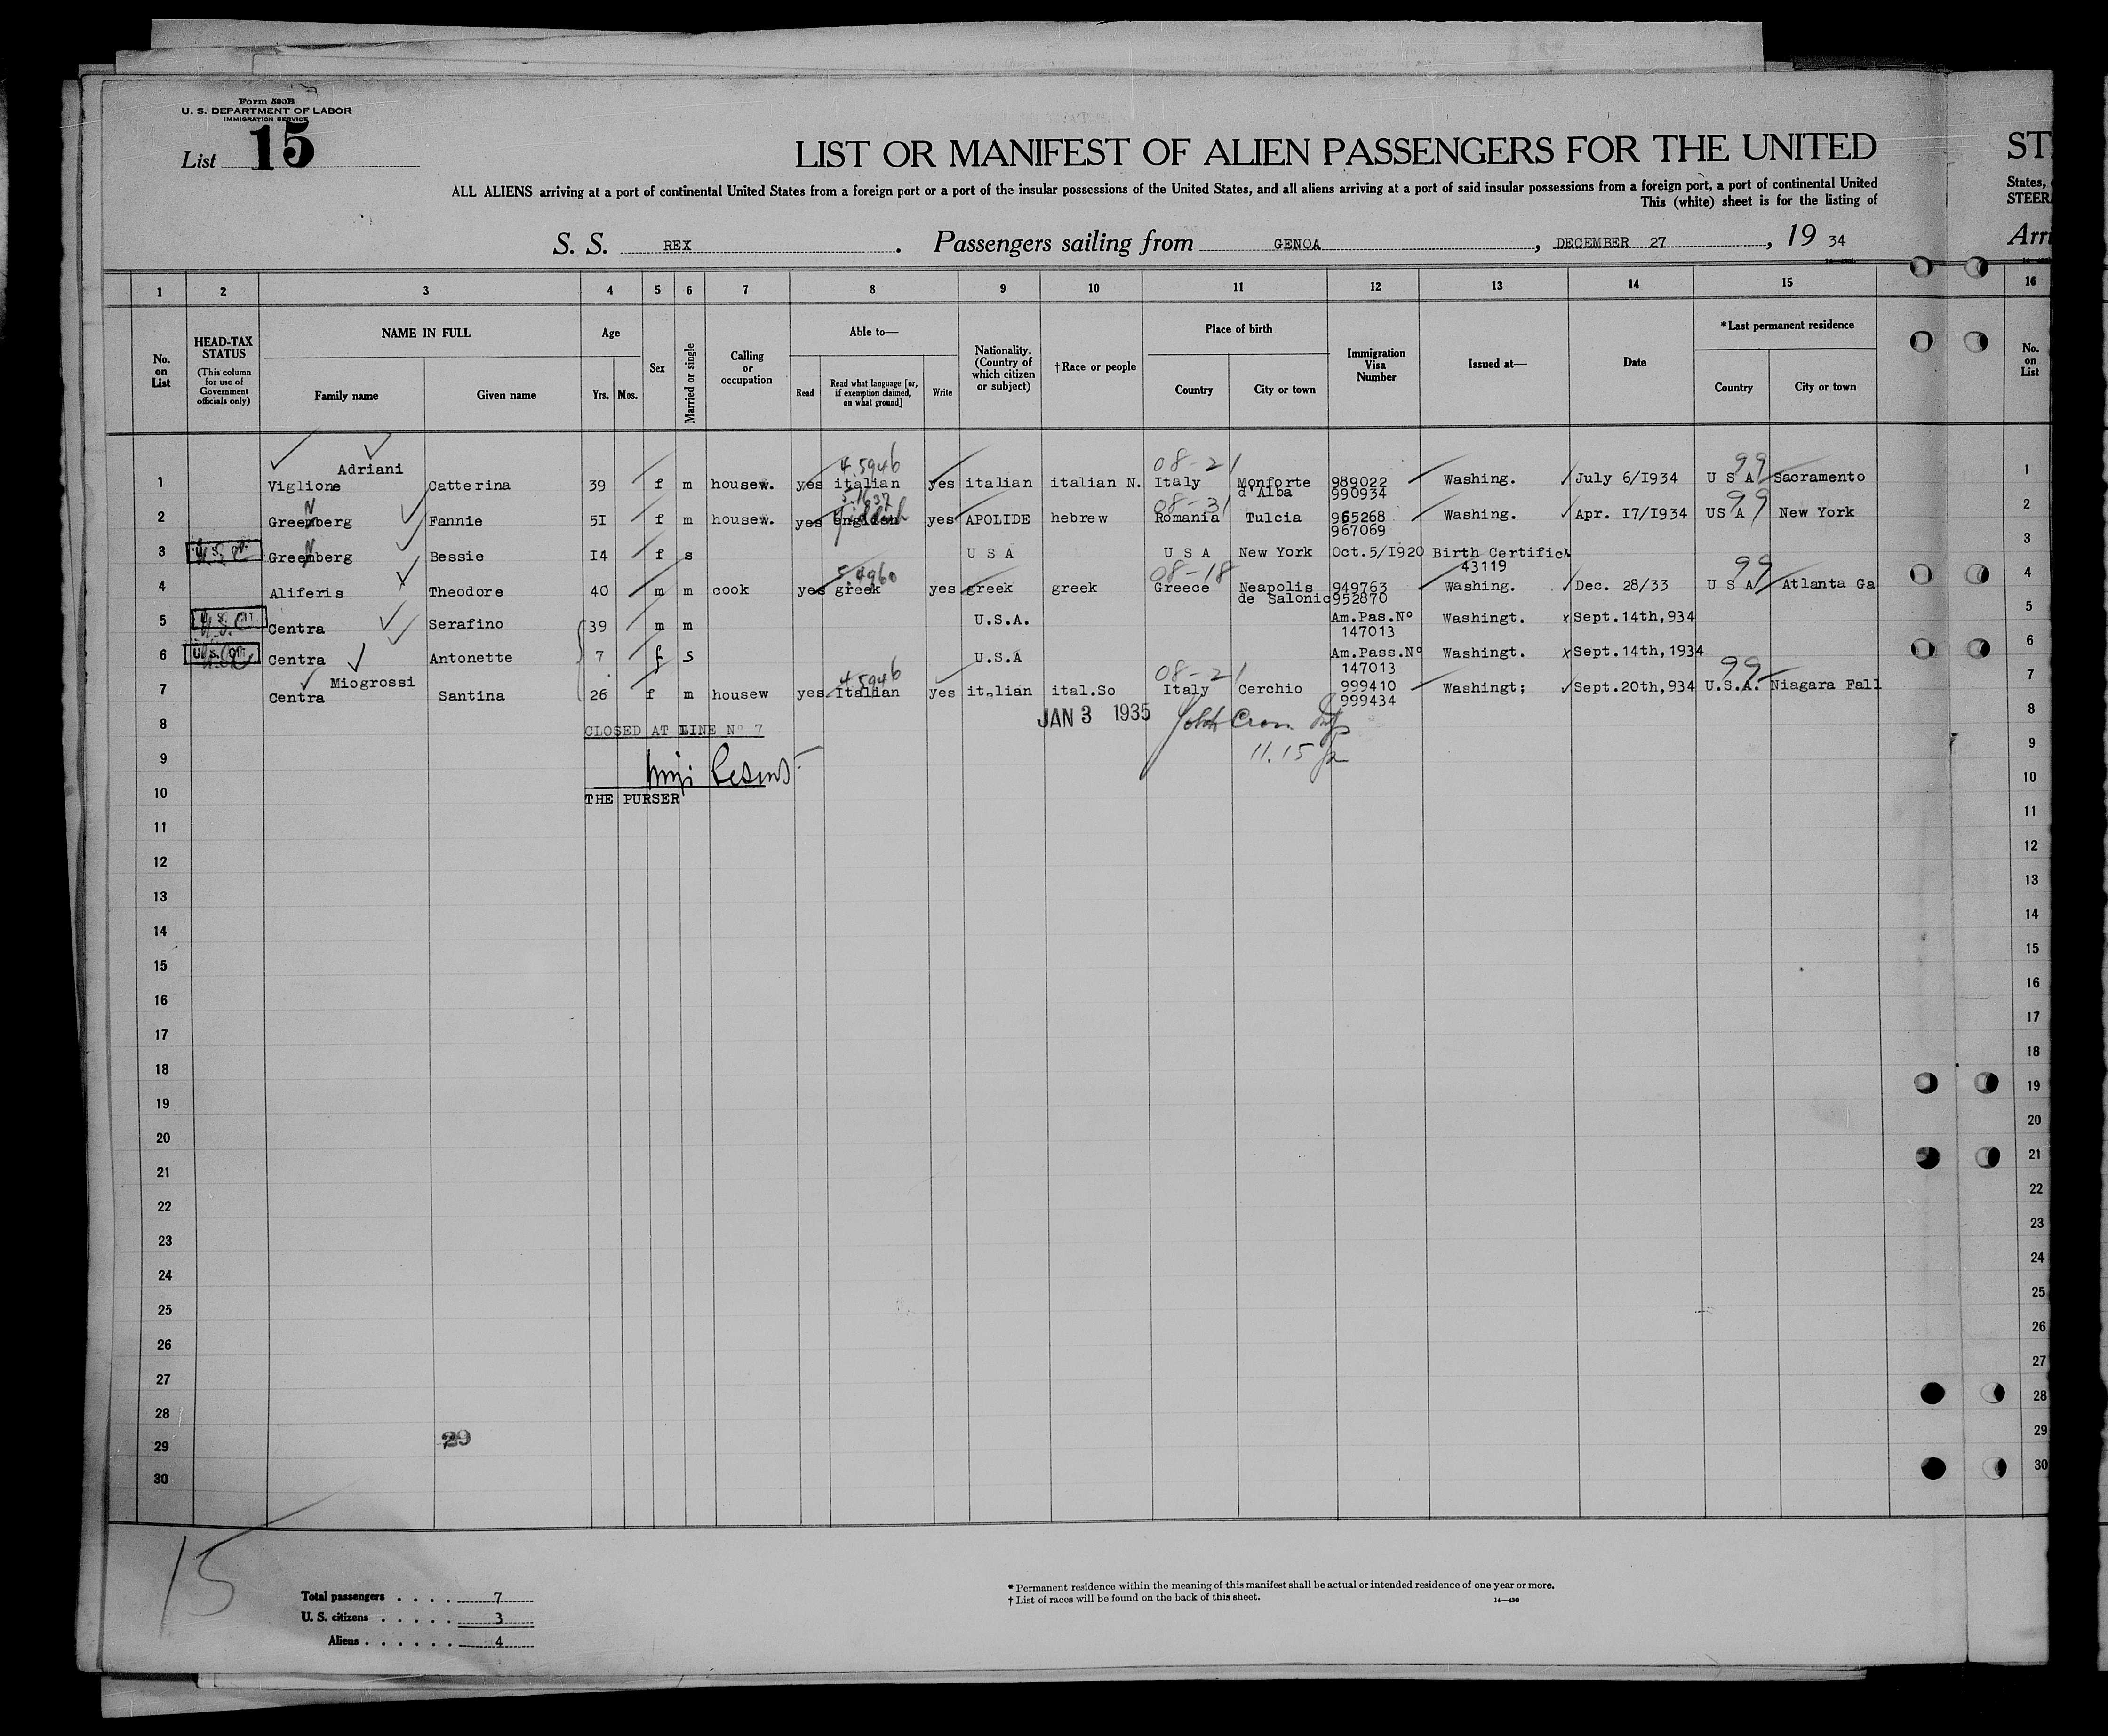 Form 500B
U. S. DEPARTMENT OF LABOR
IMMIGRATION SERVICE
List 15
LIST OR MANIFEST OF ALIEN PASSENGERS FOR THE UNITED
ST
ALL ALIENS arriving at a port of continental United States from a foreign port or a port of the insular possessions of the United States, and all aliens arriving at a port of said insular possessions from a foreign port, a port of continental United
States,
This (white) sheet is for the listing of
STEER
S. S. REX. Passengers sailing from GENOA, DECEMBER 27, 19 34
Arri
1 2 3 4 5 6 7 8 9 10 11 12 13 14 15 16
No. on List
HEAD-TAX STATUS
(This column for use of Government officials only)
NAME IN FULL
Family name Given name
Age
Yrs. Mos.
Sex
Married or single
Calling or occupation
Able to—
Read
Read what language [or, if exemption claimed, on what ground]
Write
Nationality. (Country of which citizen or subject)
†Race or people
Place of birth
Country City or town
Immigration Visa Number
Issued at—
Date
*Last permanent residence
Country City or town
No. on List
4.5946 08-21 99
Adriani
1 Viglione Catterina 39 f m housew. yes italian yes italian italian N. Italy Monforte d'Alba 989022 990934 Washing. July 6/I934 U S A Sacramento 1
5.1637 08-31 99
2 Greemberg N Fannie 5I f m housew. yes english Yiddish yes APOLIDE hebrew Romania Tulcia 965268 967069 Washing. Apr. I7/I934 US A New York 2
3 U.S. Cit. U.S.C. Greemberg N Bessie I4 f s U S A U S A New York Oct.5/I920 Birth Certific 43119 3
5.4960 08-18 99
4 Aliferis Theodore 40 m m cook yes greek yes greek greek Greece Neapolis de Salonic 949763 952870 Washing. Dec. 28/33 U S A Atlanta Ga 4
5 U.S. Cit. U.S.C. Centra Serafino 39 m m U.S.A. Am.Pas.Nº 147013 Washingt. x Sept.14th,934 5
6 U.S. Cit. U.S.C. Centra Antonette 7 f s U.S.A Am.Pass.Nº 147013 Washingt. x Sept.14th,1934 6
4.5946 08-21 99
Miogrossi
7 Centra Santina 26 f m housew yes Italian yes italian ital.So Italy Cerchio 999410 999434 Washingt; Sept.20th,934 U.S.A. Niagara Fall 7
JAN 3 1935
8 CLOSED AT LINE Nº 7 8
9 11.15 9
10 THE PURSER 10
11 11
12 12
13 13
14 14
15 15
16 16
17 17
18 18
19 19
20 20
21 21
22 22
23 23
24 24
25 25
26 26
27 27
28 28
29 29 29
30 30
15
Total passengers . . . . 7
U. S. citizens . . . . . 3
Aliens . . . . . . 4
* Permanent residence within the meaning of this manifest shall be actual or intended residence of one year or more.
† List of races will be found on the back of this sheet.
14—430